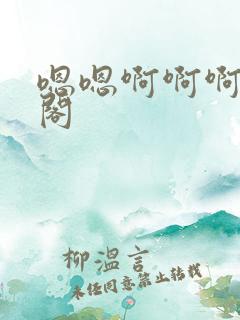 嗯嗯啊啊啊
阁
柳溫言
未经同意禁止转载